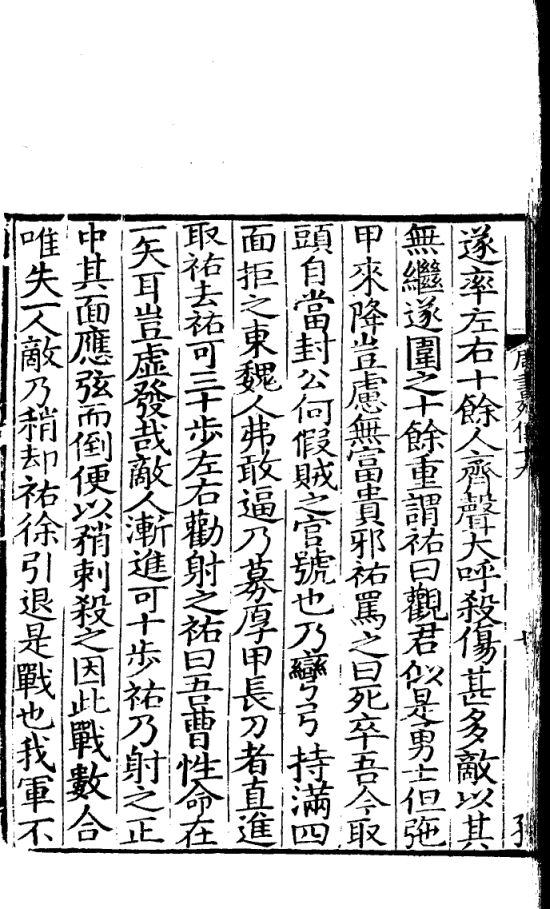 遂率左右十餘人齊聲大呼殺傷甚多敵以其
無繼遂圍之十餘重謂祐曰觀君似是勇士但弛
甲來降豈慮無富貴邪祐罵之曰死卒吾今取
頭自當封公何假賊之官號也乃彎弓持滿四
面拒之東魏人弗敢逼乃募厚甲長刀者直進
取祐去祐可三十步左右勸射之祐曰吾曹性命在
一矢耳豈虛發哉敵人漸進可十步祐乃射之正
中其面應弦而倒便以矟刺殺之因此戰數合
唯失一人敵乃稍却祐徐引退是戰也我軍不